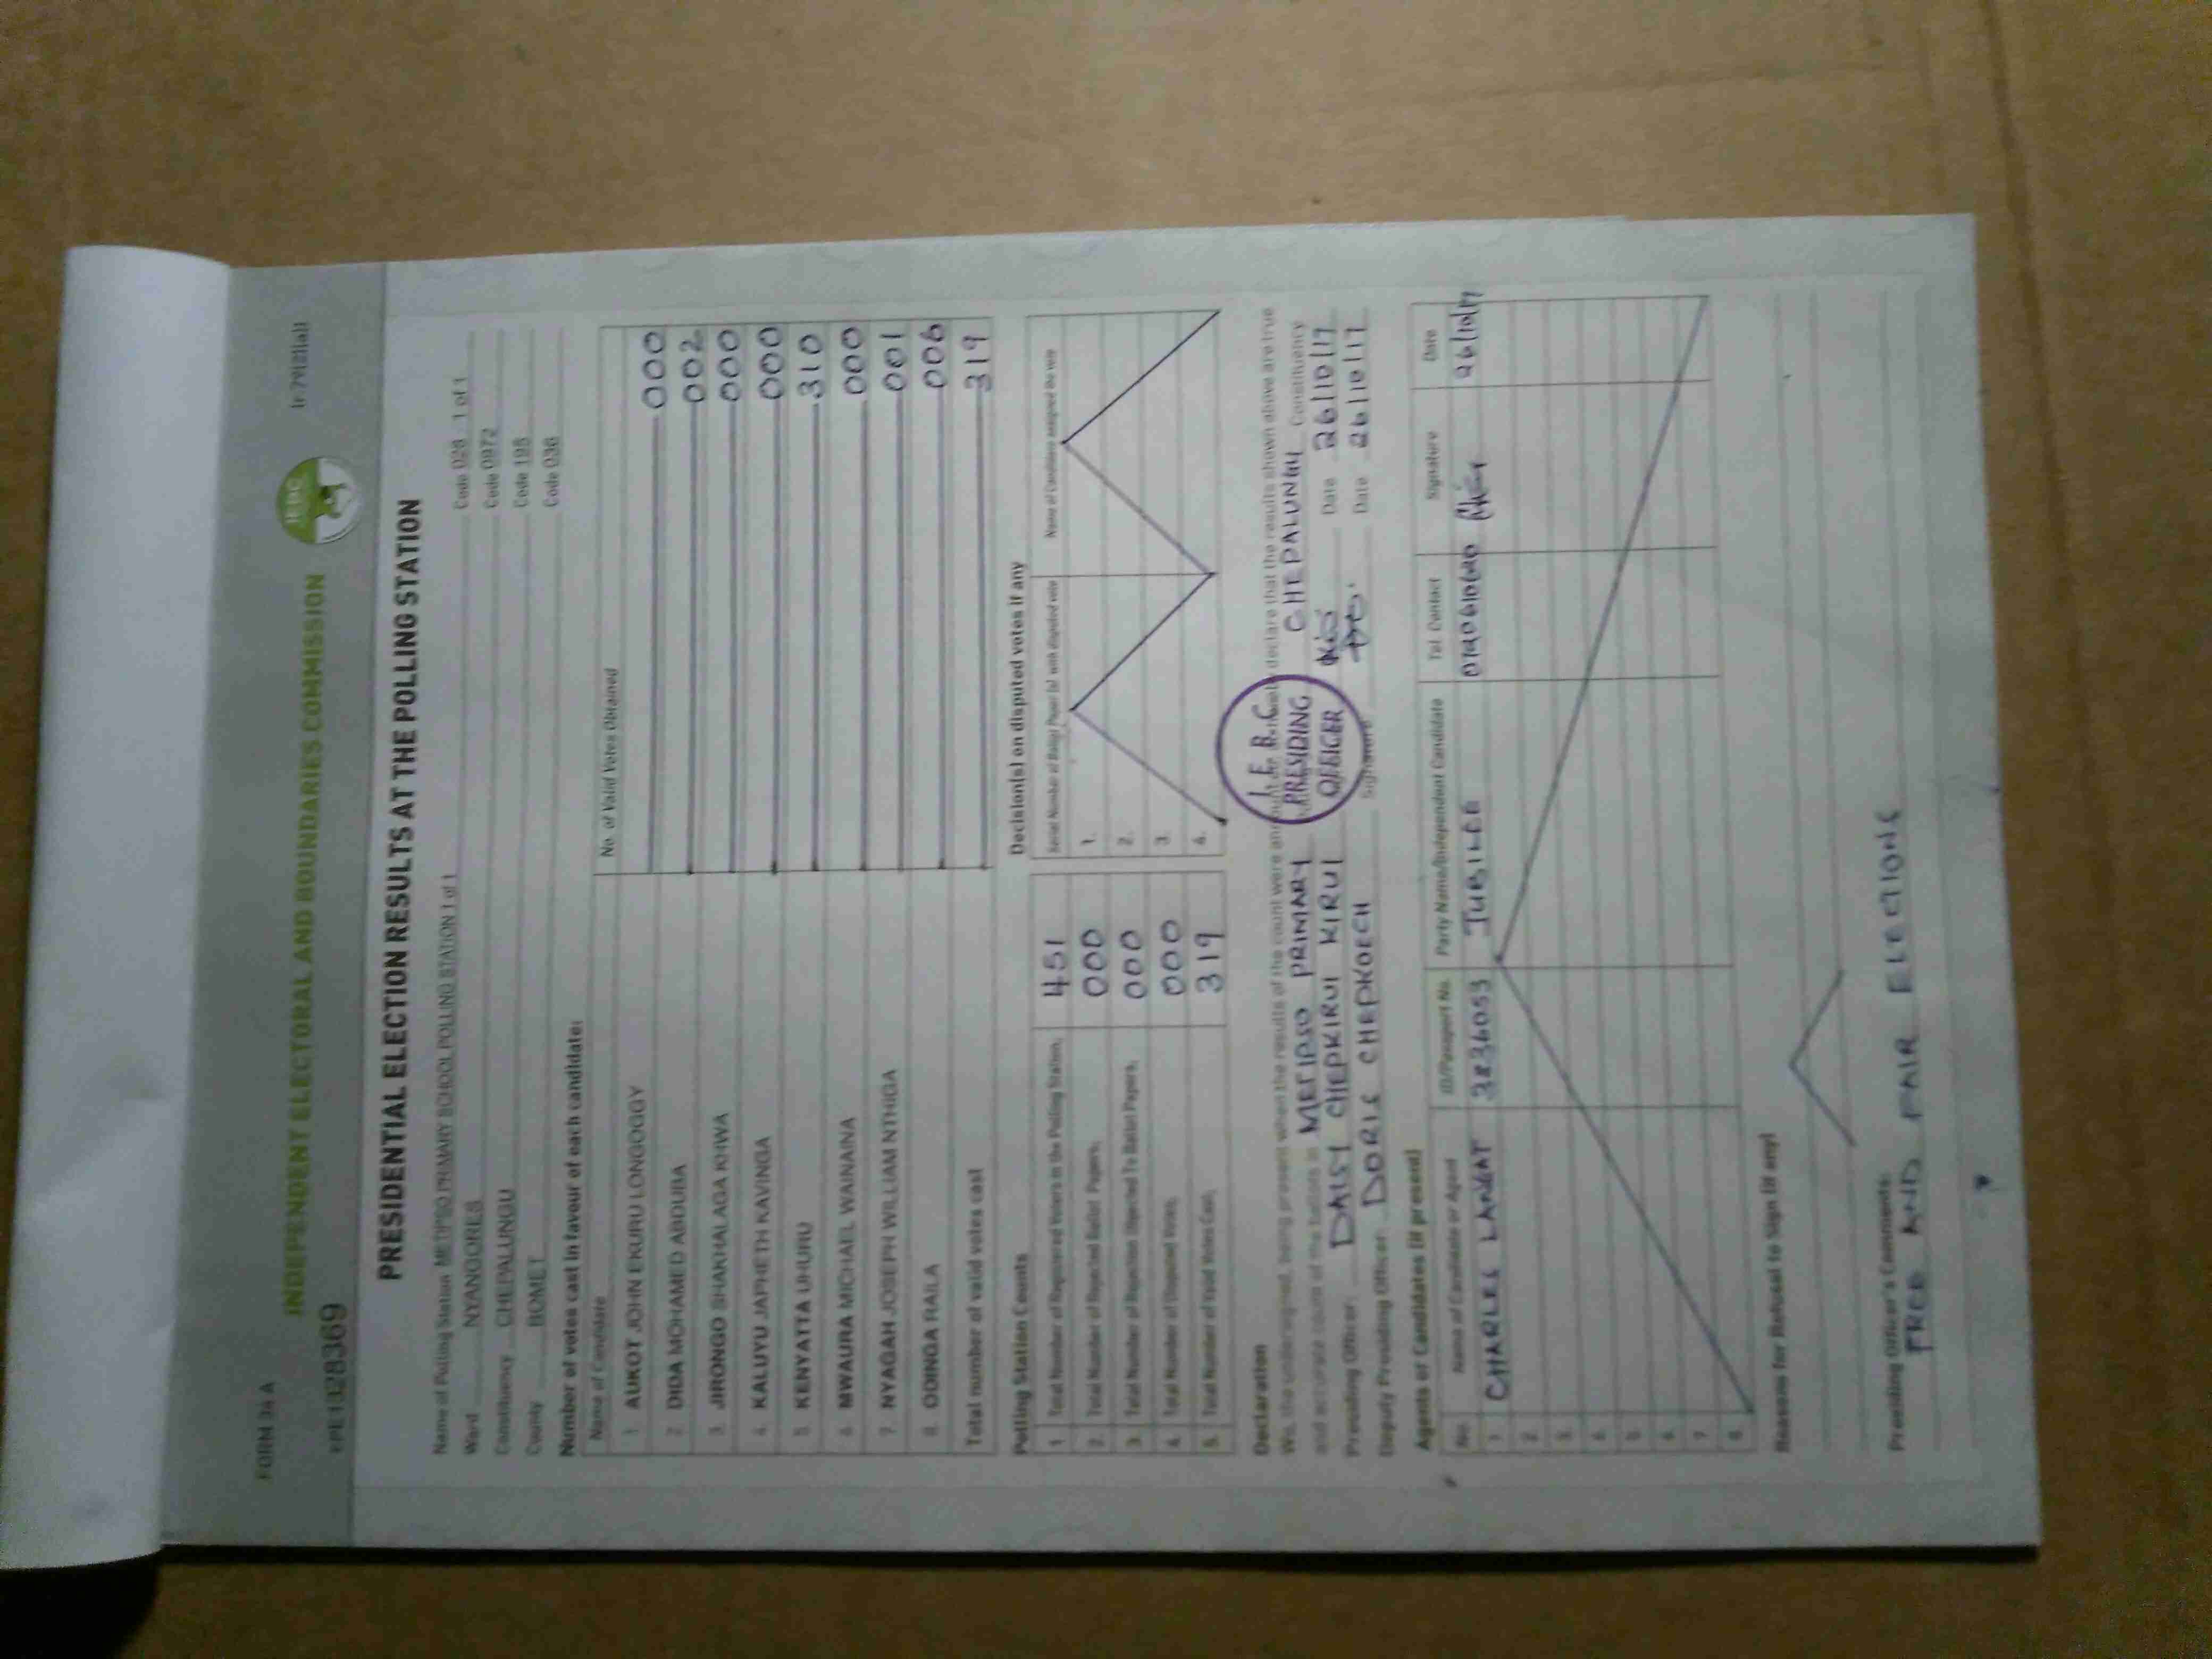 FORM 34 A
INDEPENDENT ELECTORAL AND BOUNDARIES COMMISSION
IEBC
(r.79(2)(a))
PRESIDENTIAL ELECTION RESULTS AT THE POLLING STATION
Name of Polling Station METIPSO PRIMARY SCHOOL POLLING STATION 1 of 1 Code 028 1 of 1
Ward NYANGORES Code 0972
Constituency CHEPALUNGU Code 195
County BOMET Code 036
Number of votes cast in favour of each candidate:
Name of Candidate No. of Valid Votes Obtained
1 AUKOT JOHN EKURU LONGOGGY 000
2 DIDA MOHAMED ABDUBA 002
3 JIRONGO SHAKHALAGA KHWA 000
4 KALUYU JAPHETH KAVINGA 000
5 KENYATTA UHURU 310
6 MWAURA MICHAEL WAINAINA 000
7 NYAGAH JOSEPH WILLIAM NTHIGA 001
8 ODINGA RAILA 006
Total number of valid votes cast 319
Polling Station Counts
1 Total Number of Registered Voters in the Polling Station. 451
2. Total Number of Rejected Ballot Papers. 000
3. Total Number of Rejection Objected To Ballot Papers. 000
4. Total Number of Disputed Votes. 000
5. Total Number of Valid Votes Cast. 319
Decision(s) on disputed votes if any
Serial Number of Ballot Paper (s) with disputed vote Name of Candidate assigned the vote
1.
2.
3.
4.
Declaration
We, the undersigned, being present when the results of the count were declare that the results shown above are true
and accurate count of the ballots in METIPSO PRIMARY CHEPALUNGU Constituency
Presiding Officer: DAISY CHEPKIRUI KIRUI Date 26/10/17
Deputy Presiding Officer: DORIS CHEPKOECH Signature Date 26/10/17
I.E.B.C
PRESIDING
OFFICER
Agents or Candidates (if present)
No. Name of Candidate or Agent ID/Passport No. Party Name/Independent Candidate Tel. Contact Signature Date
1 CHARLES LANGAT JUBILEE 26/10/17
2.
3.
4.
5.
6.
7.
8.
Reasons for Refusal to Sign (if any)
Presiding Officer's Comments:
FREE AND FAIR ELECTIONS